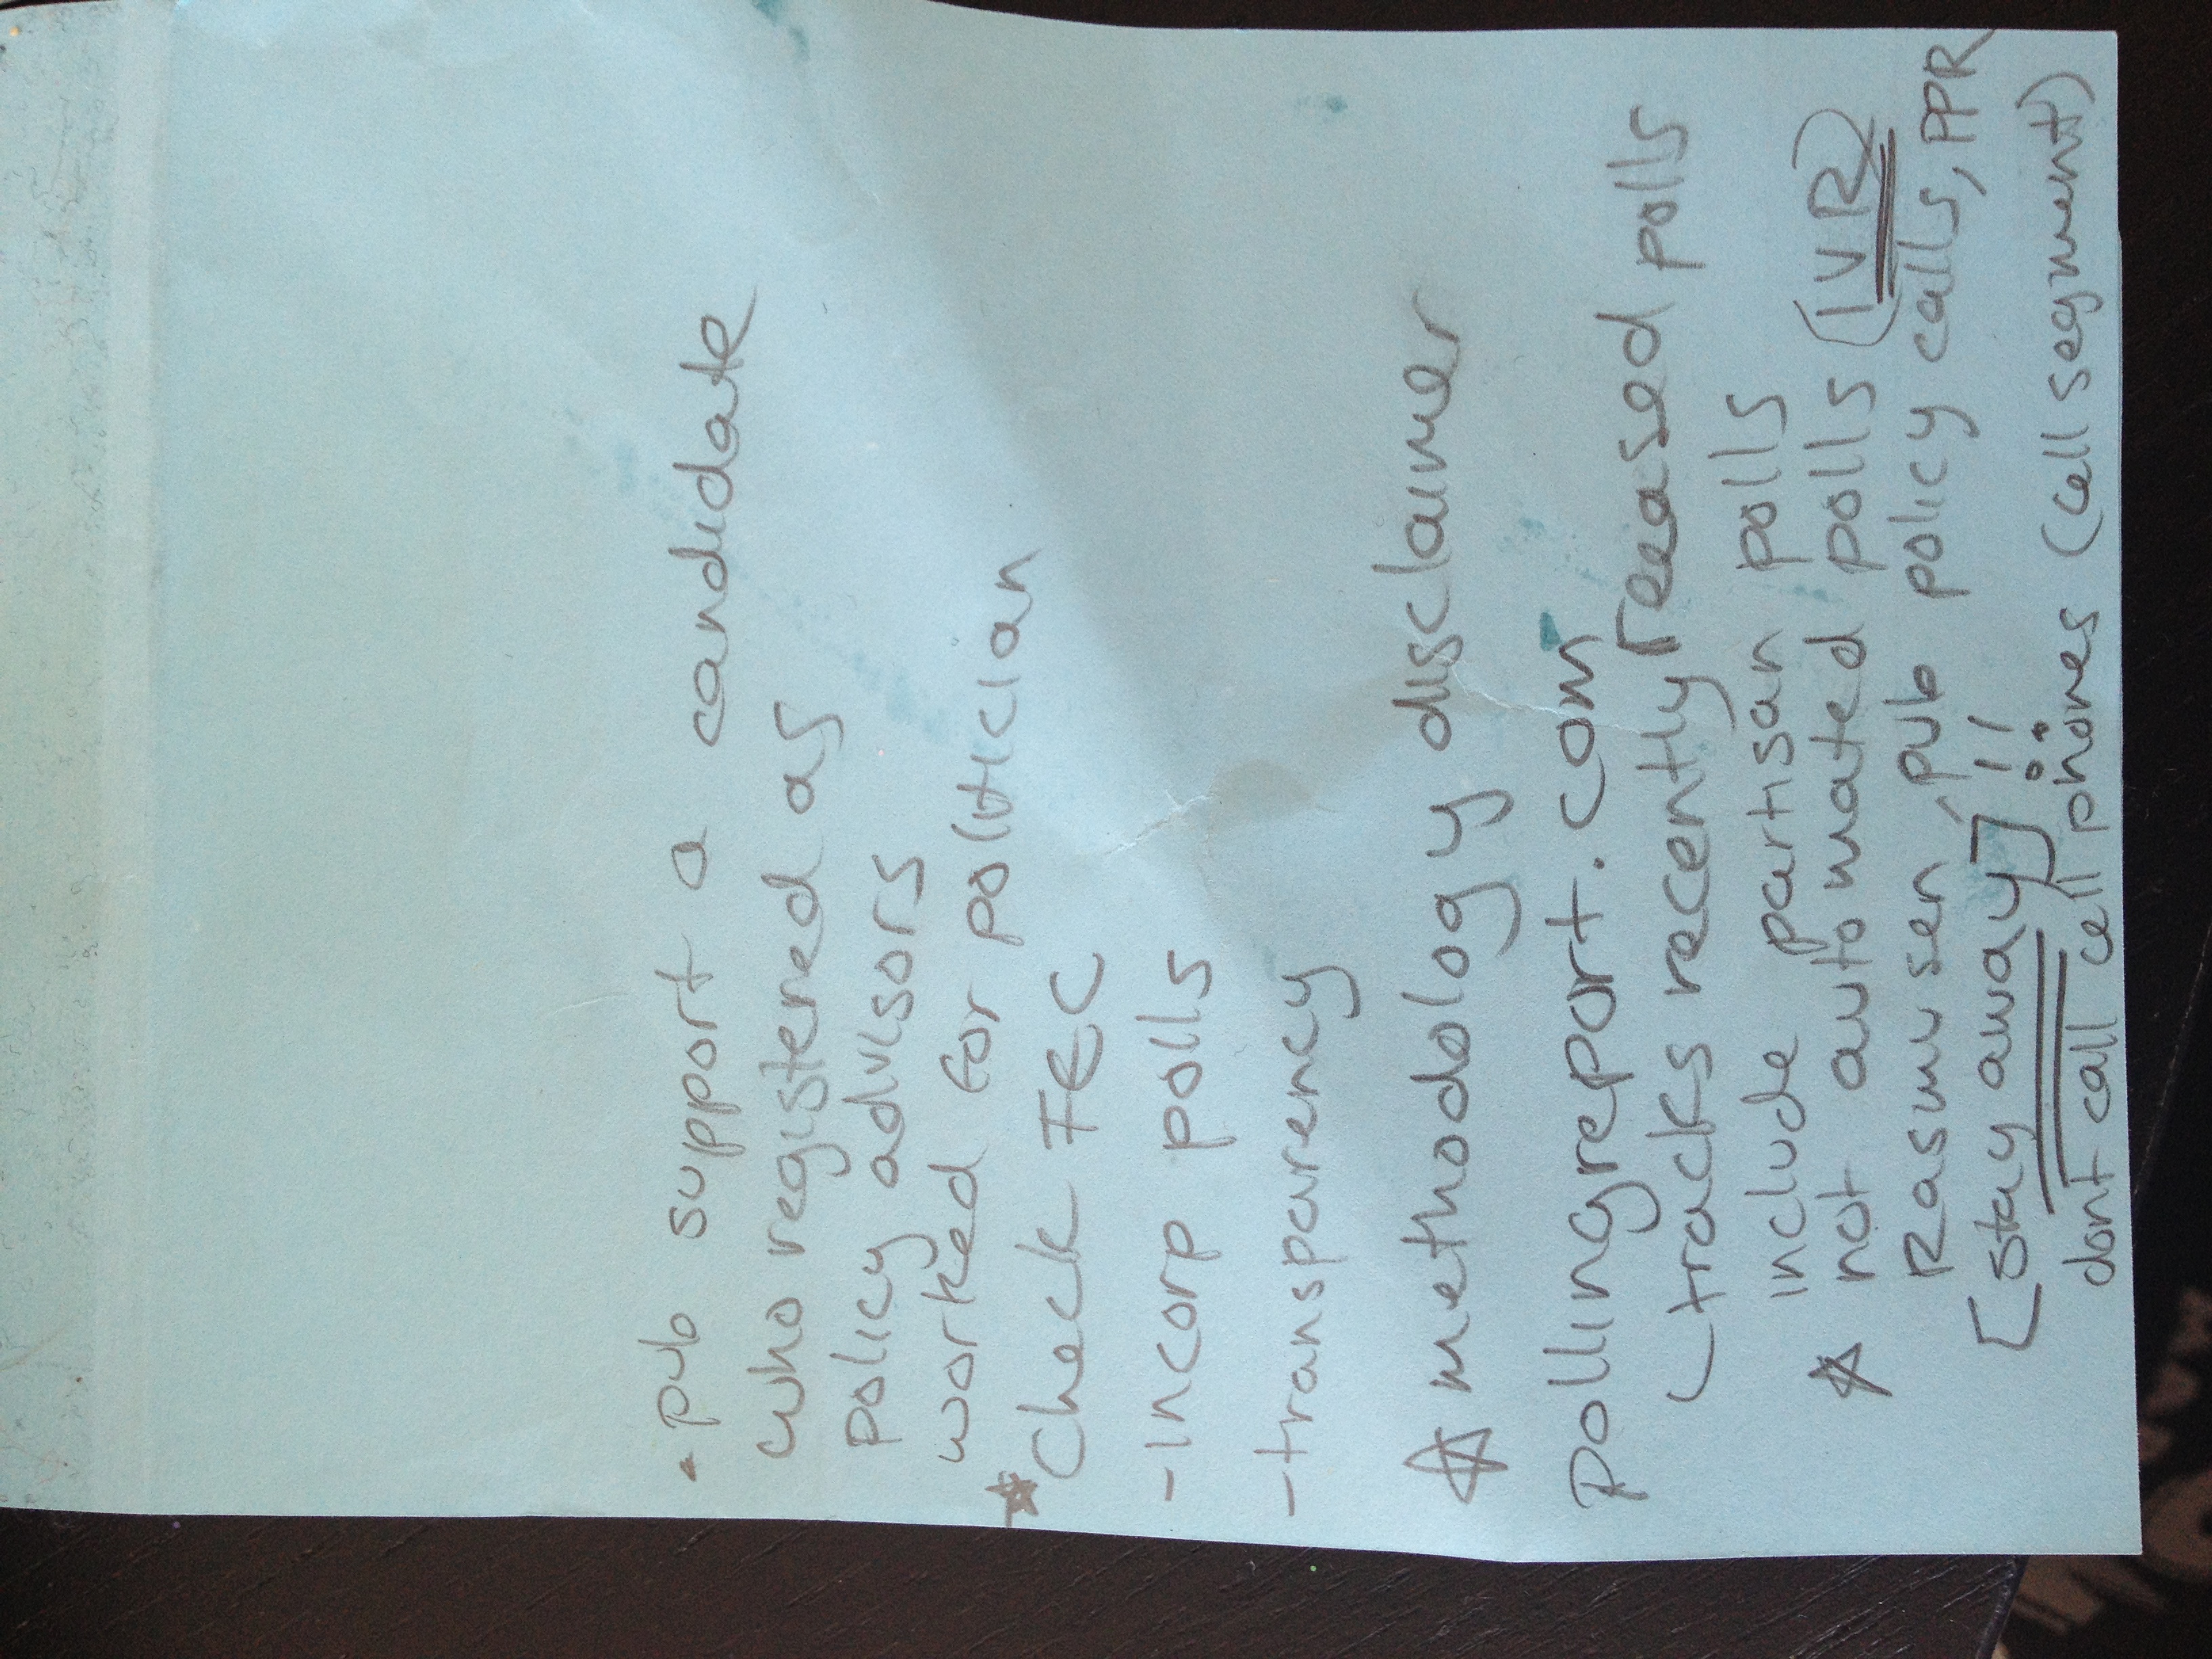 - pub support a candidate
who registered as
policy advisors
worked for politician
☆ Check FEC
- incorp polls
- transparency
☆ methodology disclaimer
pollingreport.com
tracks recently reeased polls
include partisan polls
☆ not automated polls (IVR)
Rasmusen, pub policy calls, PPR
[stay away]!!
dont call cell phones (cell segment)